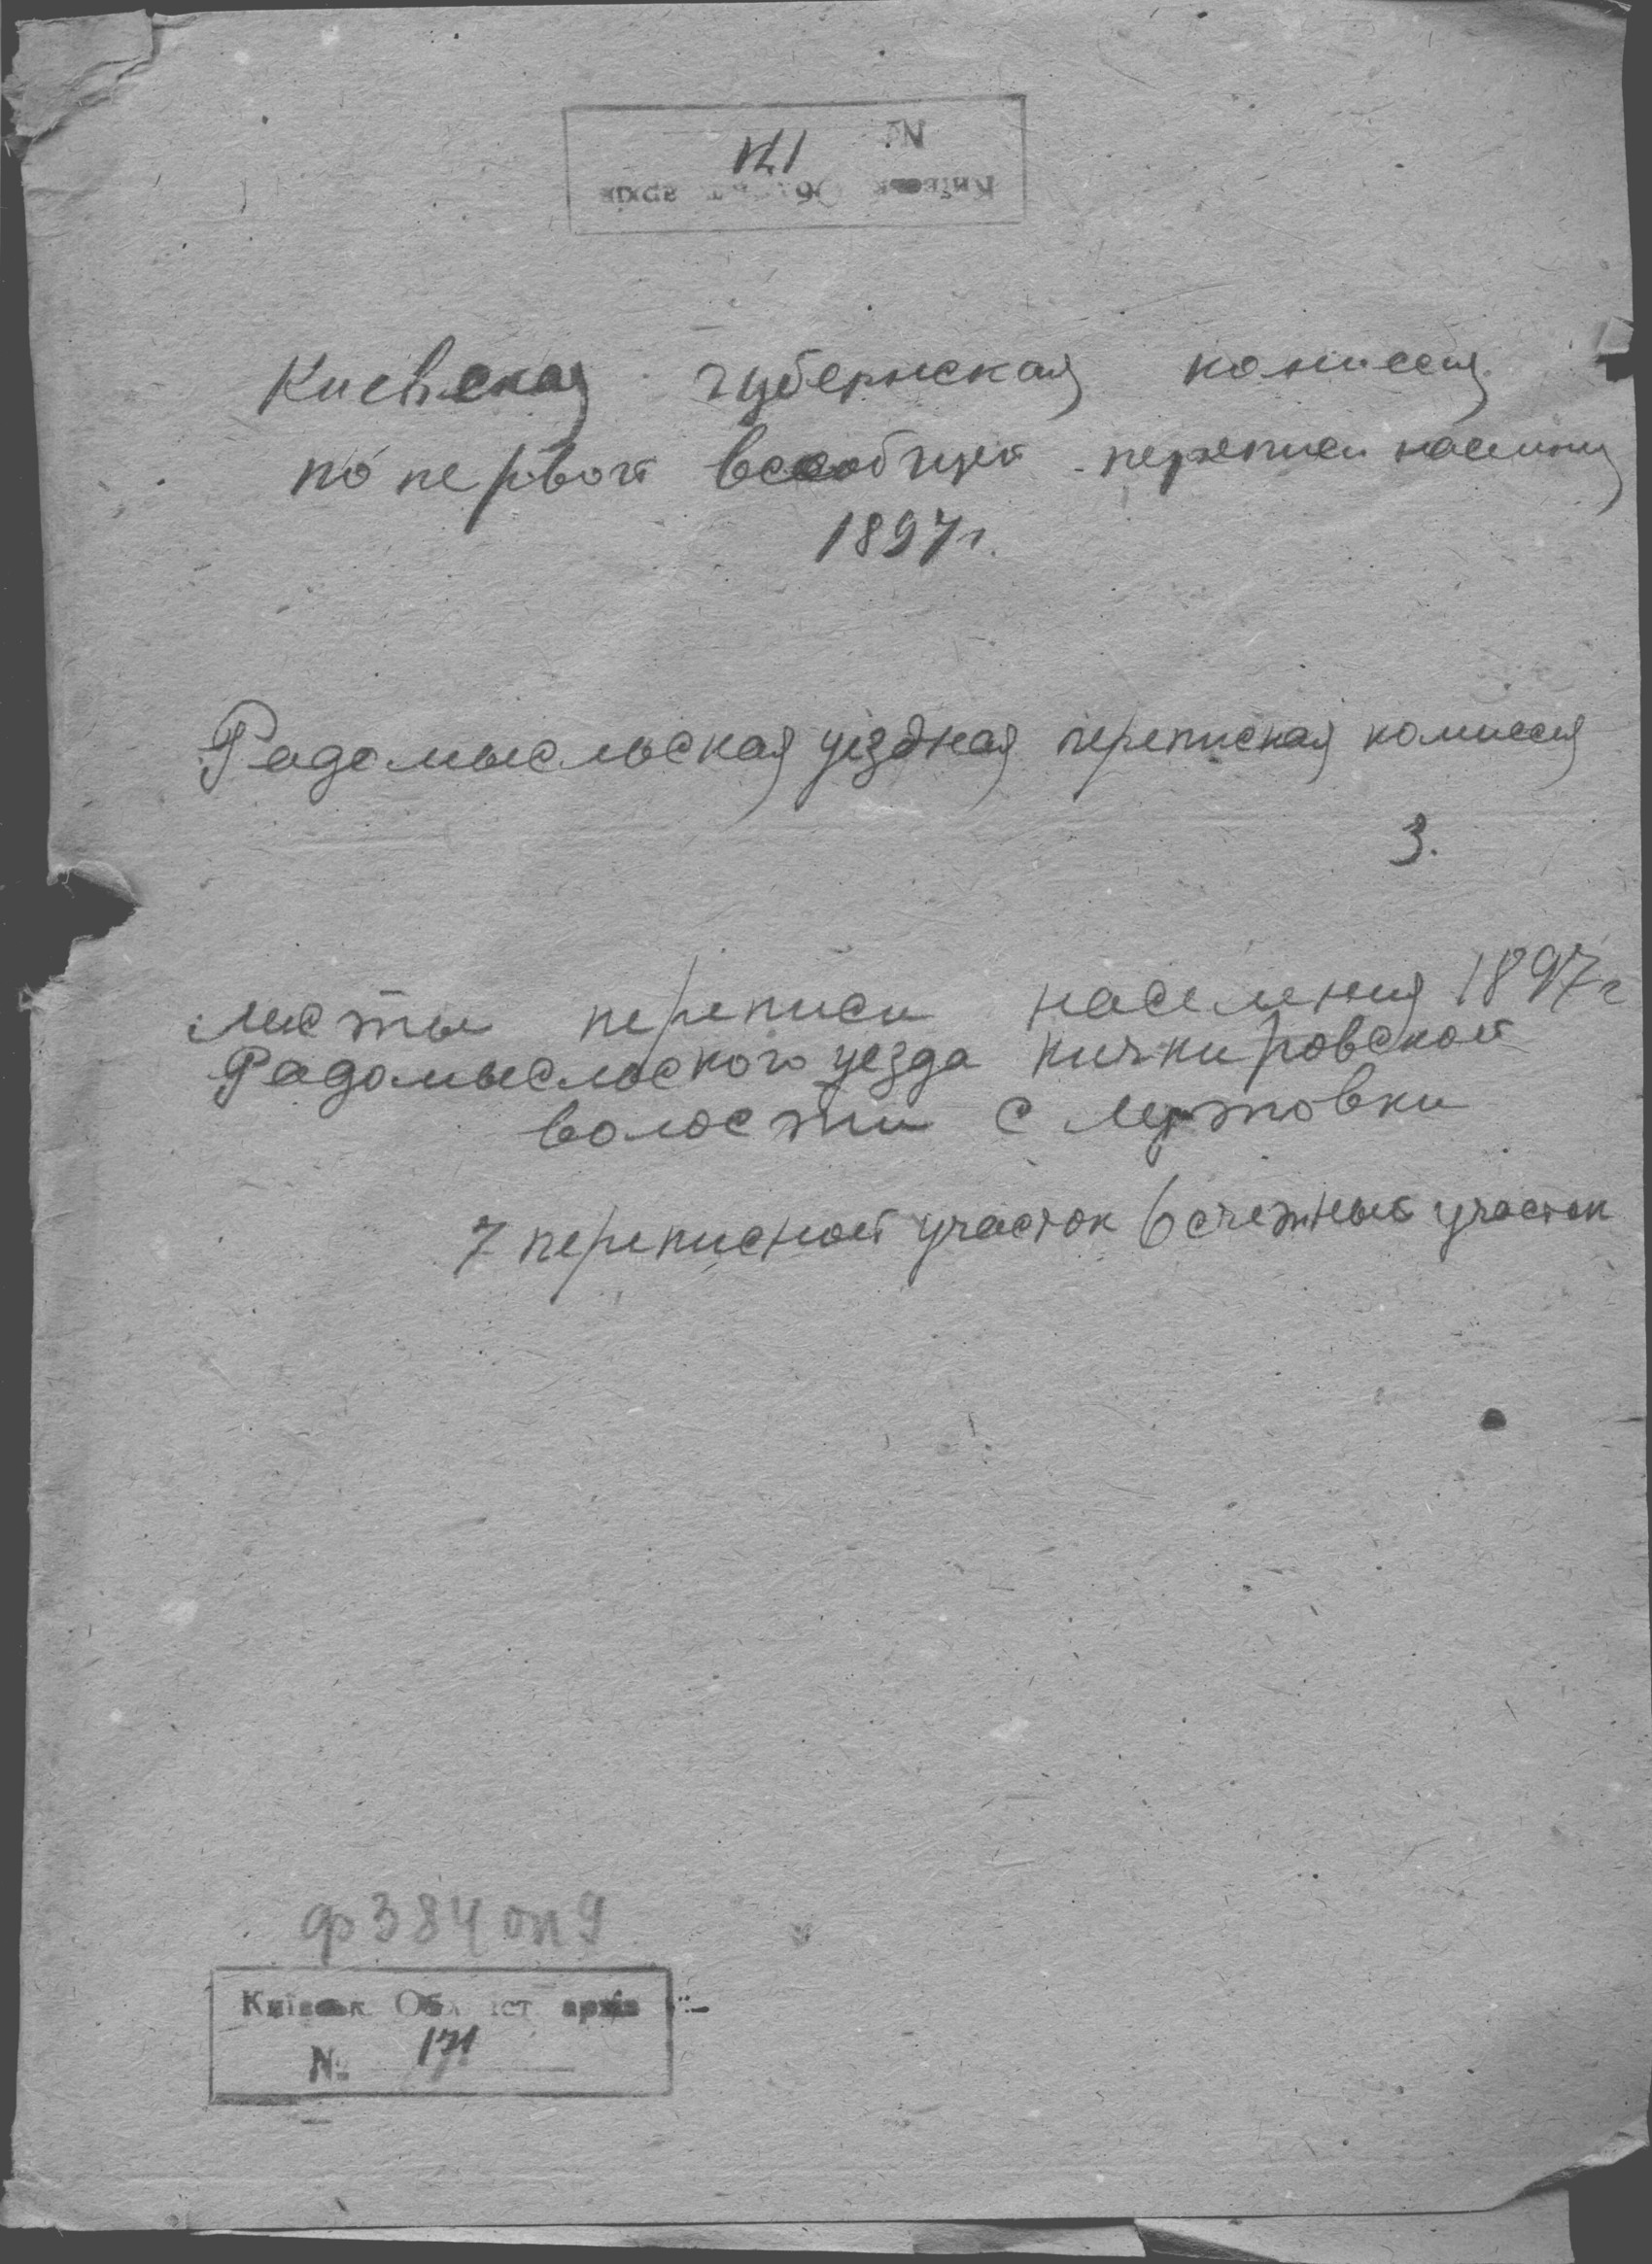 № 171
Київськ Област архів
Киевская губернская комиссия
по первой всеобщей переписи населения
1897 г.
Радомысльская уездная переписная комиссия
3.
Листы переписи населения 1897 г
Радомысльского уезда Кичкировской
волости с
7 переписной участок 6 счетный участок
ф 384 оп 9
Київськ Област архів
№ 171